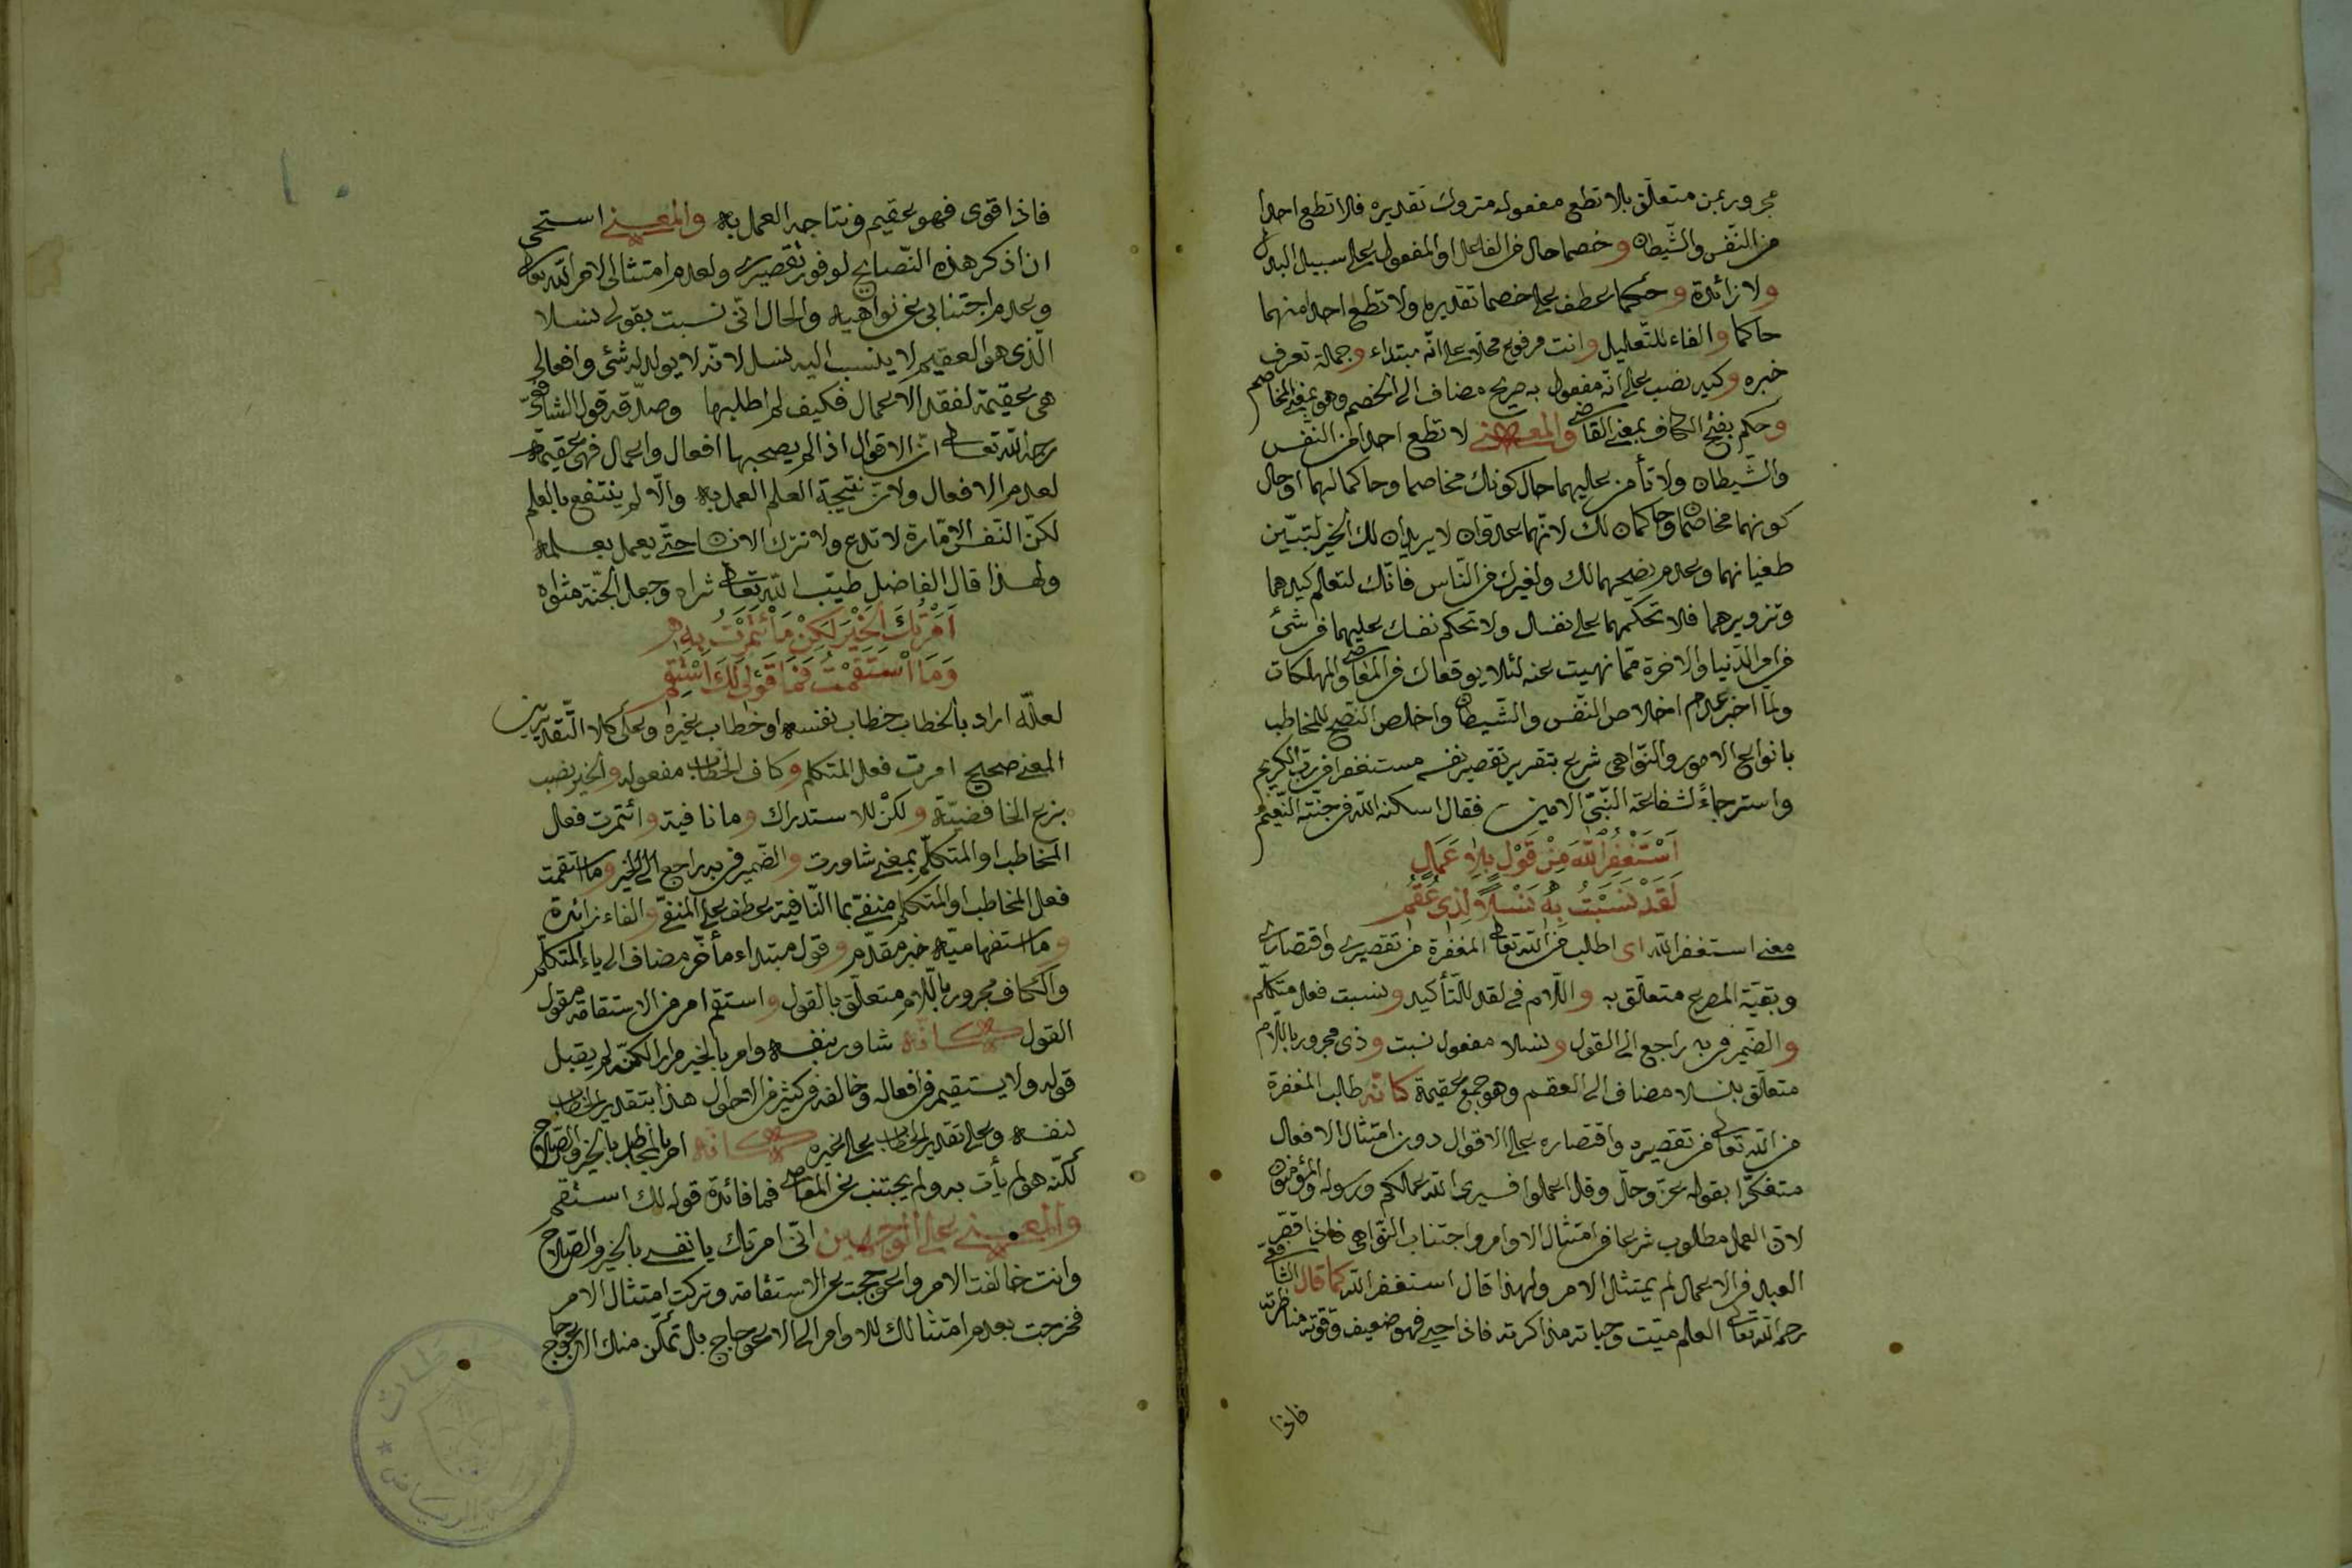 مجرور بمن متعلّق بلا تطع مفعوله متروك تقديره فلا تطع احدا
من النّفس والشّيطان وخصما حال من الفاعل او المفعول على سبيل البدل
ولا زائدة وحكما عطف على خصما تقديره ولا تطع احدا منهما
حاكما والفاء للتّعليل وانت مرفوع محلّا على انّه مبتداء وجملة تعرف
خبره وكيد نصب على انّه مفعول به صريح مضاف الى الخصم وهو بمعنى المخاصم
وحكم بفتح الكاف بمعنى القاضى والمعنى لا تطع احدا من النّفس
والشّيطان ولا تأمن عليهما حال كونك مخاصما وحاكما لهما او حال
كونهما مخاصمان وحاكمان لك لانّهما عدوّان لا يريدان لك الخير لتبيّن
طغيانهما وعدم نصيحهما لك ولغيرك من النّاس فانّك لتعلم كيدهما
وتزويرهما فلا تحكّمهما على نفسك ولا تحكم نفسك عليهما فى شئ
من امر الدّنيا والاخرة ممّا نهيت عنه لئلا يوقعاك فى المعاصى والمهلكات
ولمّا اخبر عدم اخلاص النّفس والشّيطان واخلص النّصح للمخاطب
بانواع الامور والنّواهى شرع بتقرير تقصير نفسه مستغفرا من ربّ الكريم
واسترجاءً لشفاعة النّبىّ الامين فقال اسكنه الله فى جنّة النّعيم
اَسْتَغْفِرُ اللّٰهَ مِنْ قَوْلٍ بِلَا عَمَلٍ
لَقَدْ نَسَبْتُ بِهِ نَسْلًا لِذِى عُقُمِ
معنى استغفر الله اى اطلب من الله تعالى المغفرة من تقصيرى واقتصارى
وبقيّة المصرع متعلّق به واللّام فى لقد للتّأكيد ونسبت فعل متكلّم
والضّمير فى به راجع الى القول ونسلا مفعول نسبت وذى مجرور باللّام
متعلّق بنسلا مضاف الى العقم وهو جمع عقيمة كانّه طالب المغفرة
من الله تعالى من تقصيره واقتصاره على الاقوال دون امتثال الافعال
متفكّرا بقوله عزّ وجلّ وقل اعملوا فسيرى الله عملكم ورسوله والمؤمنون
لانّ العمل مطلوب شرعا من امتثال الاوامر واجتناب النّواهى فاذا قصّر
العبد فى الاعمال لم يمتثل الامر ولهذا قال استغفر الله كما قال الشافعى
رحمه الله تعالى العلم ميّت وحياته مذاكرته فاذا حيى فهو ضعيف وقوّته مناظرته
فاذا
فاذا قوى فهو عقيم ونتاجه العمل به والمعنى استحى
ان اذكر هذه النّصايح لوفور تقصيرى ولعدم امتثالى لامر الله تعالى
وعدم اجتنابى عن نواهيه والحال انّى نسبت بقولى نسلا
الّذى هو العقيم لا ينسب اليه نسل لانّه لا يولد له شئ وافعالى
هى عقيمة لفقد الاعمال فكيف لم اطلبها وصدّقه قول الشافعىّ
رحمه الله تعالى انّ الاقوال اذا لم يصحبها افعال واعمال فهى عقيمة
لعدم الافعال ولانّ نتيجة العلم العمل به والّا لم ينتفع بالعلم
لكنّ النّفس الامّارة لا تدع ولا تترك الانسان حتّى يعمل بعلمه
ولهذا قال الفاضل طيّب الله تعالى ثراه وجعل الجنّة مثواه
اَمَرْتُكَ الْخَيْرَ لٰكِنْ مَا ائْتَمَرْتُ بِهِ
وَمَا اسْتَقَمْتُ فَمَا قَوْلِى لَكَ اسْتَقِمِ
لعلّه اراد بالخطاب خطاب نفسه او خطاب غيره وعلى كلا التّقديرين
المعنى صحيح امرت فعل المتكلم وكاف الخطاب مفعوله والخير نصب
بنزع الخافضيّة ولكنْ للاستدراك وما نافية وائتمرت فعل
المخاطب او المتكلّم بمعنى شاورت والضّمير فى به راجع الى الخير وما استقمت
فعل المخاطب او المتكلّم منفىّ بما النّافية عطف على المنفىّ والفاء زائدة
وما استفهاميّة خبر مقدّم وقول مبتداء مأخّر مضاف الى ياء المتكلّم
والكاف مجرور باللّام متعلّق بالقول واستقم امر من الاستقامة مقول
القول كانّه شاور نفسه وامر بالخير مرارا لكنّه لم يقبل
قوله ولا يستقيم فى افعاله وخالفه فى كثير من الاحوال هذا بتقدير الخطاب
لنفسه وعلى تقدير الخطاب على غيره كانّه امر المخاطب بالخير والصّلاح
لكنّه هو لم يأت به ولم يجتنب عن المعاصى فما فائدة قوله لك استقم
والمعنى على الوجهين انّى امرتك يا نفسى بالخير والصّلاح
وانت خالفت الامر واعوججت عن الاستقامة وتركت امتثال الامر
فخرجت بعدم امتثالك للاوامر الى الاعوجاج بل تمكّن منك الاعوجاج